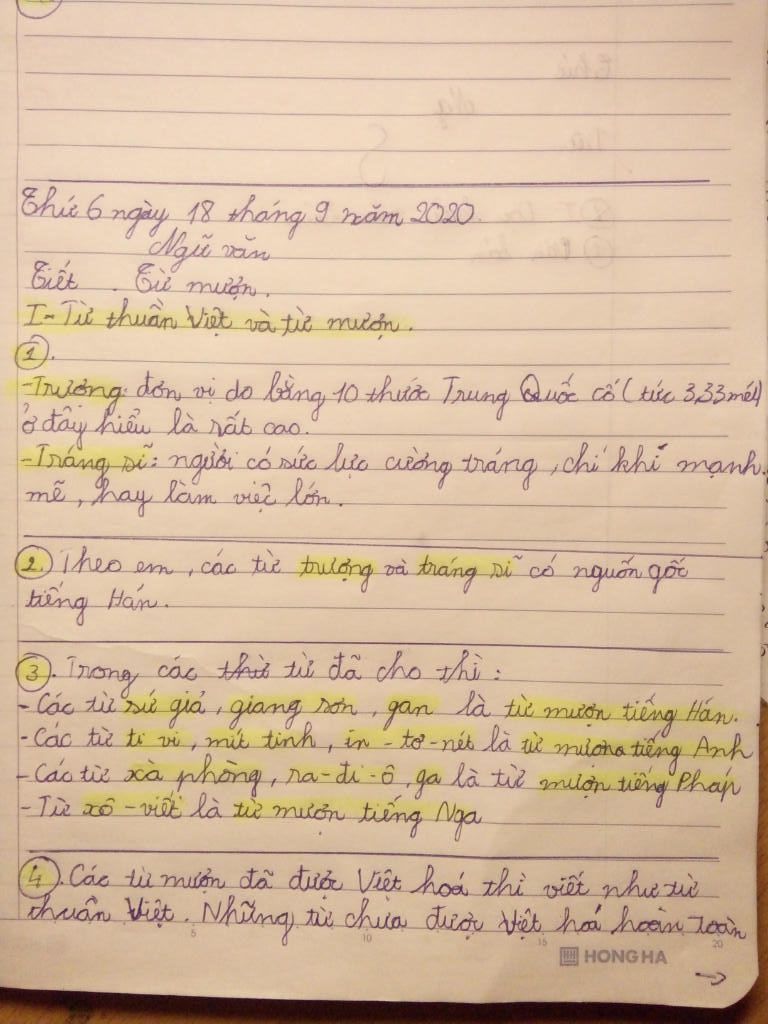 Thứ 6 ngày 18 tháng 9 năm 2020.
Ngữ văn
Tiết . Từ mượn.
I- Từ thuần Việt và từ mượn.
1.
- Trượng: đơn vị do bằng 10 thước Trung Quốc cổ (tức 3,33 mét)
ở đây hiểu là rất cao.
- Tráng sĩ: người có sức lực cường tráng, chí khí mạnh
mẽ, hay làm việc lớn.
2. Theo em, các từ trượng và tráng sĩ có nguồn gốc
tiếng Hán.
3. Trong các từ đã cho thì:
- Các từ sứ giả, giang sơn, gan là từ mượn tiếng Hán.
- Các từ ti vi, mít tinh, in-tơ-nét là từ mượn tiếng Anh
- Các từ xà phòng, ra-đi-ô, ga là từ mượn tiếng Pháp
- Từ xô-viết là từ mượn tiếng Nga
4. Các từ mượn đã được Việt hoá thì viết như từ
thuần Việt. Những từ chưa được Việt hoá hoàn toàn
5 10 15 20
HONG HA